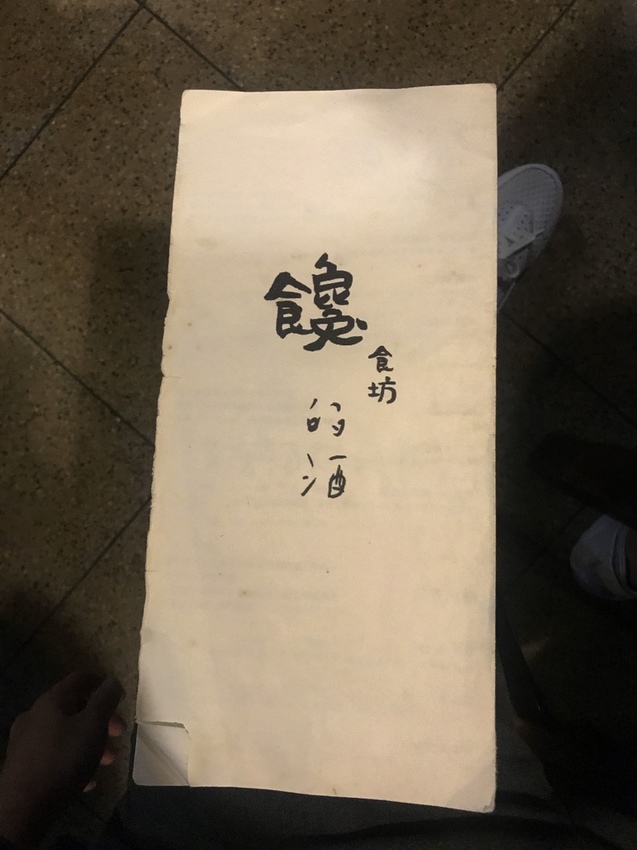 饞
食坊
的酒